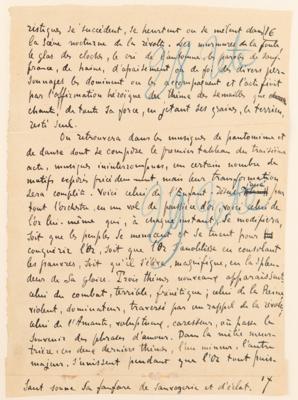 ristiques, se succèdent, se heurtent ou se mêlent dans
16
la scène nocturne de la révolte. Les murmures de la foule
le glas des cloches, le cri de les paroles de souf-
france, de haine, d'apaisement ou de foi des divers per-
sonnages les dominent ou les accompagnent et l'acte finit
par l'affirmation héroïque du thème des semailles que
chante, de toute sa force, en jetant ses grains, le terrien,
resté seul.
On retrouvera dans les musiques de pantomime et
de danse dont se compose le premier tableau du troisième
acte, musiques ininterrompues, un certain nombre de
motifs exposés mais leur transformation
sera complète. Voici celui de l'enfant
tout l'orchestre en un vol de voici celui de
l'or lui-même qui, à chaque instant, se modifiera,
soit que les peuples se menacent et se tuent pour
conquérir l'Or, soit que l'Or anoblisse en consolant
les pauvres, soit qu'il s'élève, magnifique, en la splen-
deur de sa gloire. Trois thèmes nouveaux apparaissent,
celui du combat, terrible, frénétique ; celui de la Reine
violent, dominateur, traversé par un rappel de la révolte,
celui de l'Amante, voluptueux, caresseur, où passe le
souvenir des phrases d'amour. Dans la mêlée meur-
trière, ces deux derniers thèmes, l'un mineur, l'autre
majeur, s'unissent pendant que l'Or tout puis-
sant sonne sa fanfare de sauvagerie et d'éclat.
17